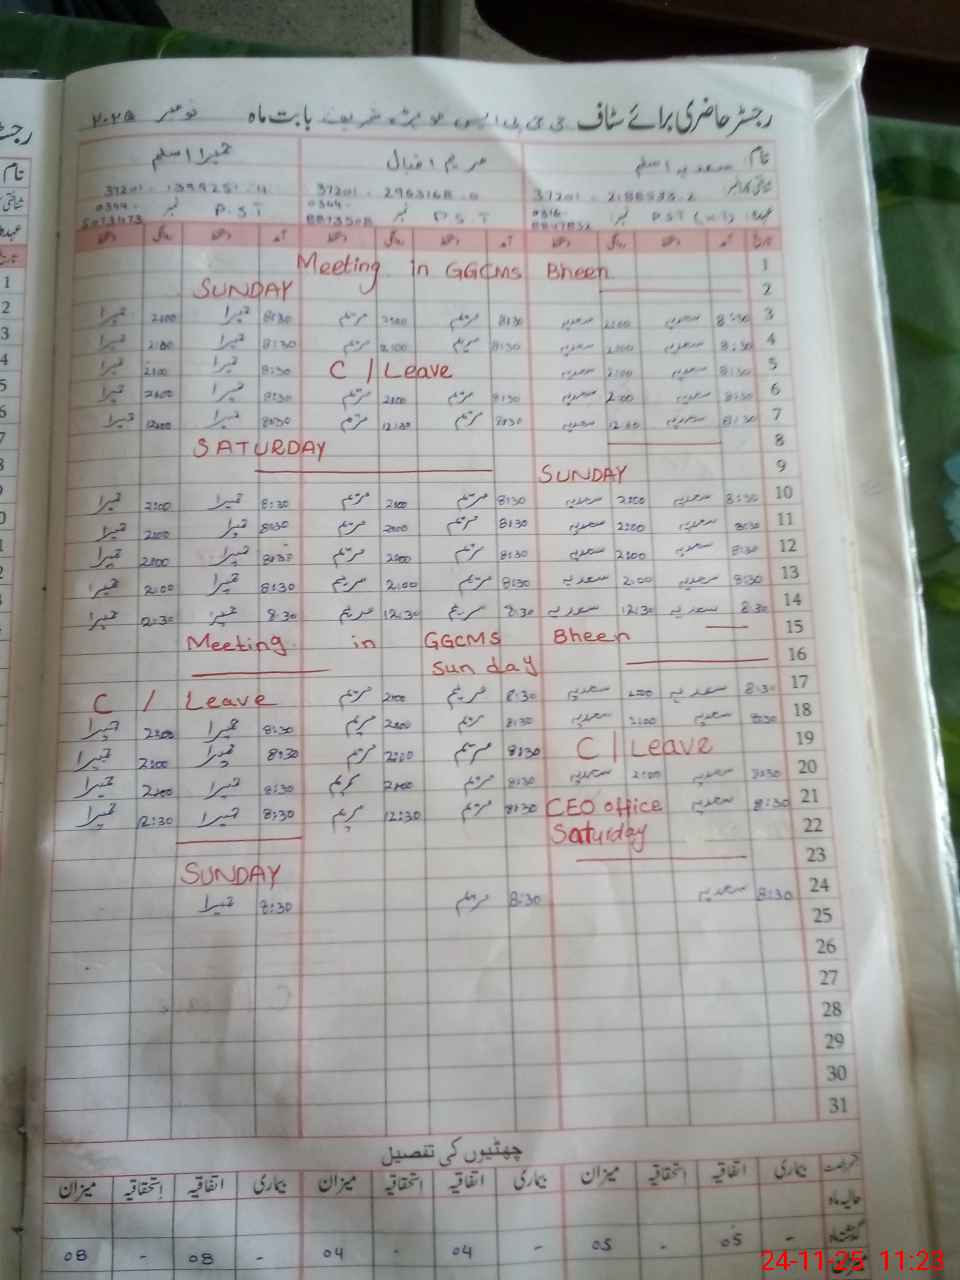 رجسٹر حاضری برائے سٹاف بابت ماہ نومبر ۲۰۲۵
نام سعدیہ اسلم مریم اقبال حمیرا اسلم
37201
37201
37201
0316- P.S.T 0344- P.S.T 0344-
تاریخ
1 Meeting in GGCMS Bheen
2 SUNDAY
3 8:30 سعدیہ 2:00 سعدیہ 8:30 مریم 2:00 مریم 8:30 حمیرا 2:00 حمیرا
4 8:30 سعدیہ 2:00 سعدیہ 8:30 مریم 2:00 مریم 8:30 حمیرا 2:00 حمیرا
5 8:30 سعدیہ 2:00 سعدیہ C / Leave 8:30 حمیرا 2:00 حمیرا
6 8:30 سعدیہ 2:00 سعدیہ 8:30 مریم 2:00 مریم 8:30 حمیرا 2:00 حمیرا
7 8:30 سعدیہ 12:30 سعدیہ 8:30 مریم 12:30 مریم 8:30 حمیرا 12:30 حمیرا
8 SATURDAY
9 SUNDAY
10 8:30 سعدیہ 2:00 سعدیہ 8:30 مریم 2:00 مریم 8:30 حمیرا 2:00 حمیرا
11 8:30 سعدیہ 2:00 سعدیہ 8:30 مریم 2:00 مریم 8:30 حمیرا 2:00 حمیرا
12 8:30 سعدیہ 2:00 سعدیہ 8:30 مریم 2:00 مریم 8:30 حمیرا 2:00 حمیرا
13 8:30 سعدیہ 2:00 سعدیہ 8:30 مریم 2:00 مریم 8:30 حمیرا 2:00 حمیرا
14 8:30 سعدیہ 12:30 سعدیہ 8:30 مریم 12:30 مریم 8:30 حمیرا 12:30 حمیرا
15 Meeting in GGCMS Bheen
16 Sunday
17 8:30 سعدیہ 2:00 سعدیہ 8:30 مریم 2:00 مریم C / Leave
18 8:30 سعدیہ 2:00 سعدیہ 8:30 مریم 2:00 مریم 8:30 حمیرا 2:00 حمیرا
19 C / Leave 8:30 مریم 2:00 مریم 8:30 حمیرا 2:00 حمیرا
20 8:30 سعدیہ 2:00 سعدیہ 8:30 مریم 2:00 مریم 8:30 حمیرا 2:00 حمیرا
21 8:30 سعدیہ CEO office 8:30 مریم 12:30 مریم 8:30 حمیرا 12:30 حمیرا
22 Saturday
23 SUNDAY
24 8:30 سعدیہ 8:30 مریم 8:30 حمیرا
25
26
27
28
29
30
31
چھٹیوں کی تفصیل
بیماری اتفاقیہ استحقاقیہ میزان بیماری اتفاقیہ استحقاقیہ میزان بیماری اتفاقیہ استحقاقیہ میزان
حالیہ ماہ
گذشتہ ماہ - 05 - 05 - 04 - 04 - 08 - 08
24-11-25 11:23